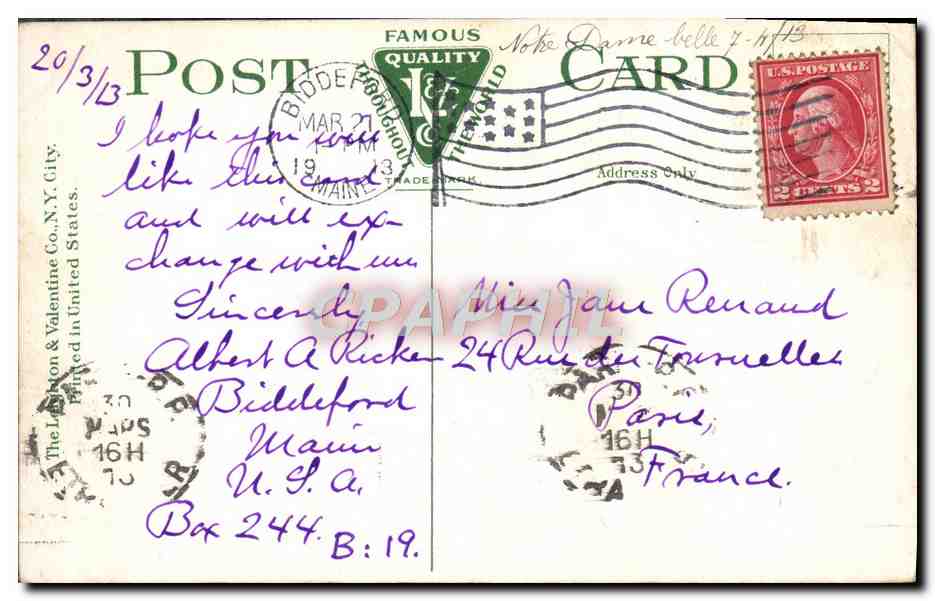 Notre Dame belle 7-4/13
20/3/13
POST CARD
FAMOUS
QUALITY
L&V
Co
THROUGHOUT
THE WORLD
TRADE MARK.
BIDDEFORD
MAR 21
PM
19 13
MAINE
U.S. POSTAGE
2 CENTS 2
Address Only
The Leighton & Valentine Co., N.Y. City.
Printed in United States.
I hope you will
like this card
and will ex-
change with me
Sincerely
Albert A Ricker
Biddeford
Maine
U.S.A.
Box 244.
B: 19.
Miss Jane Renaud
24 Rue des Tournelles
Paris,
France.
CPAPHIL
30
MARS
16H
13
PARIS
30
16H
13